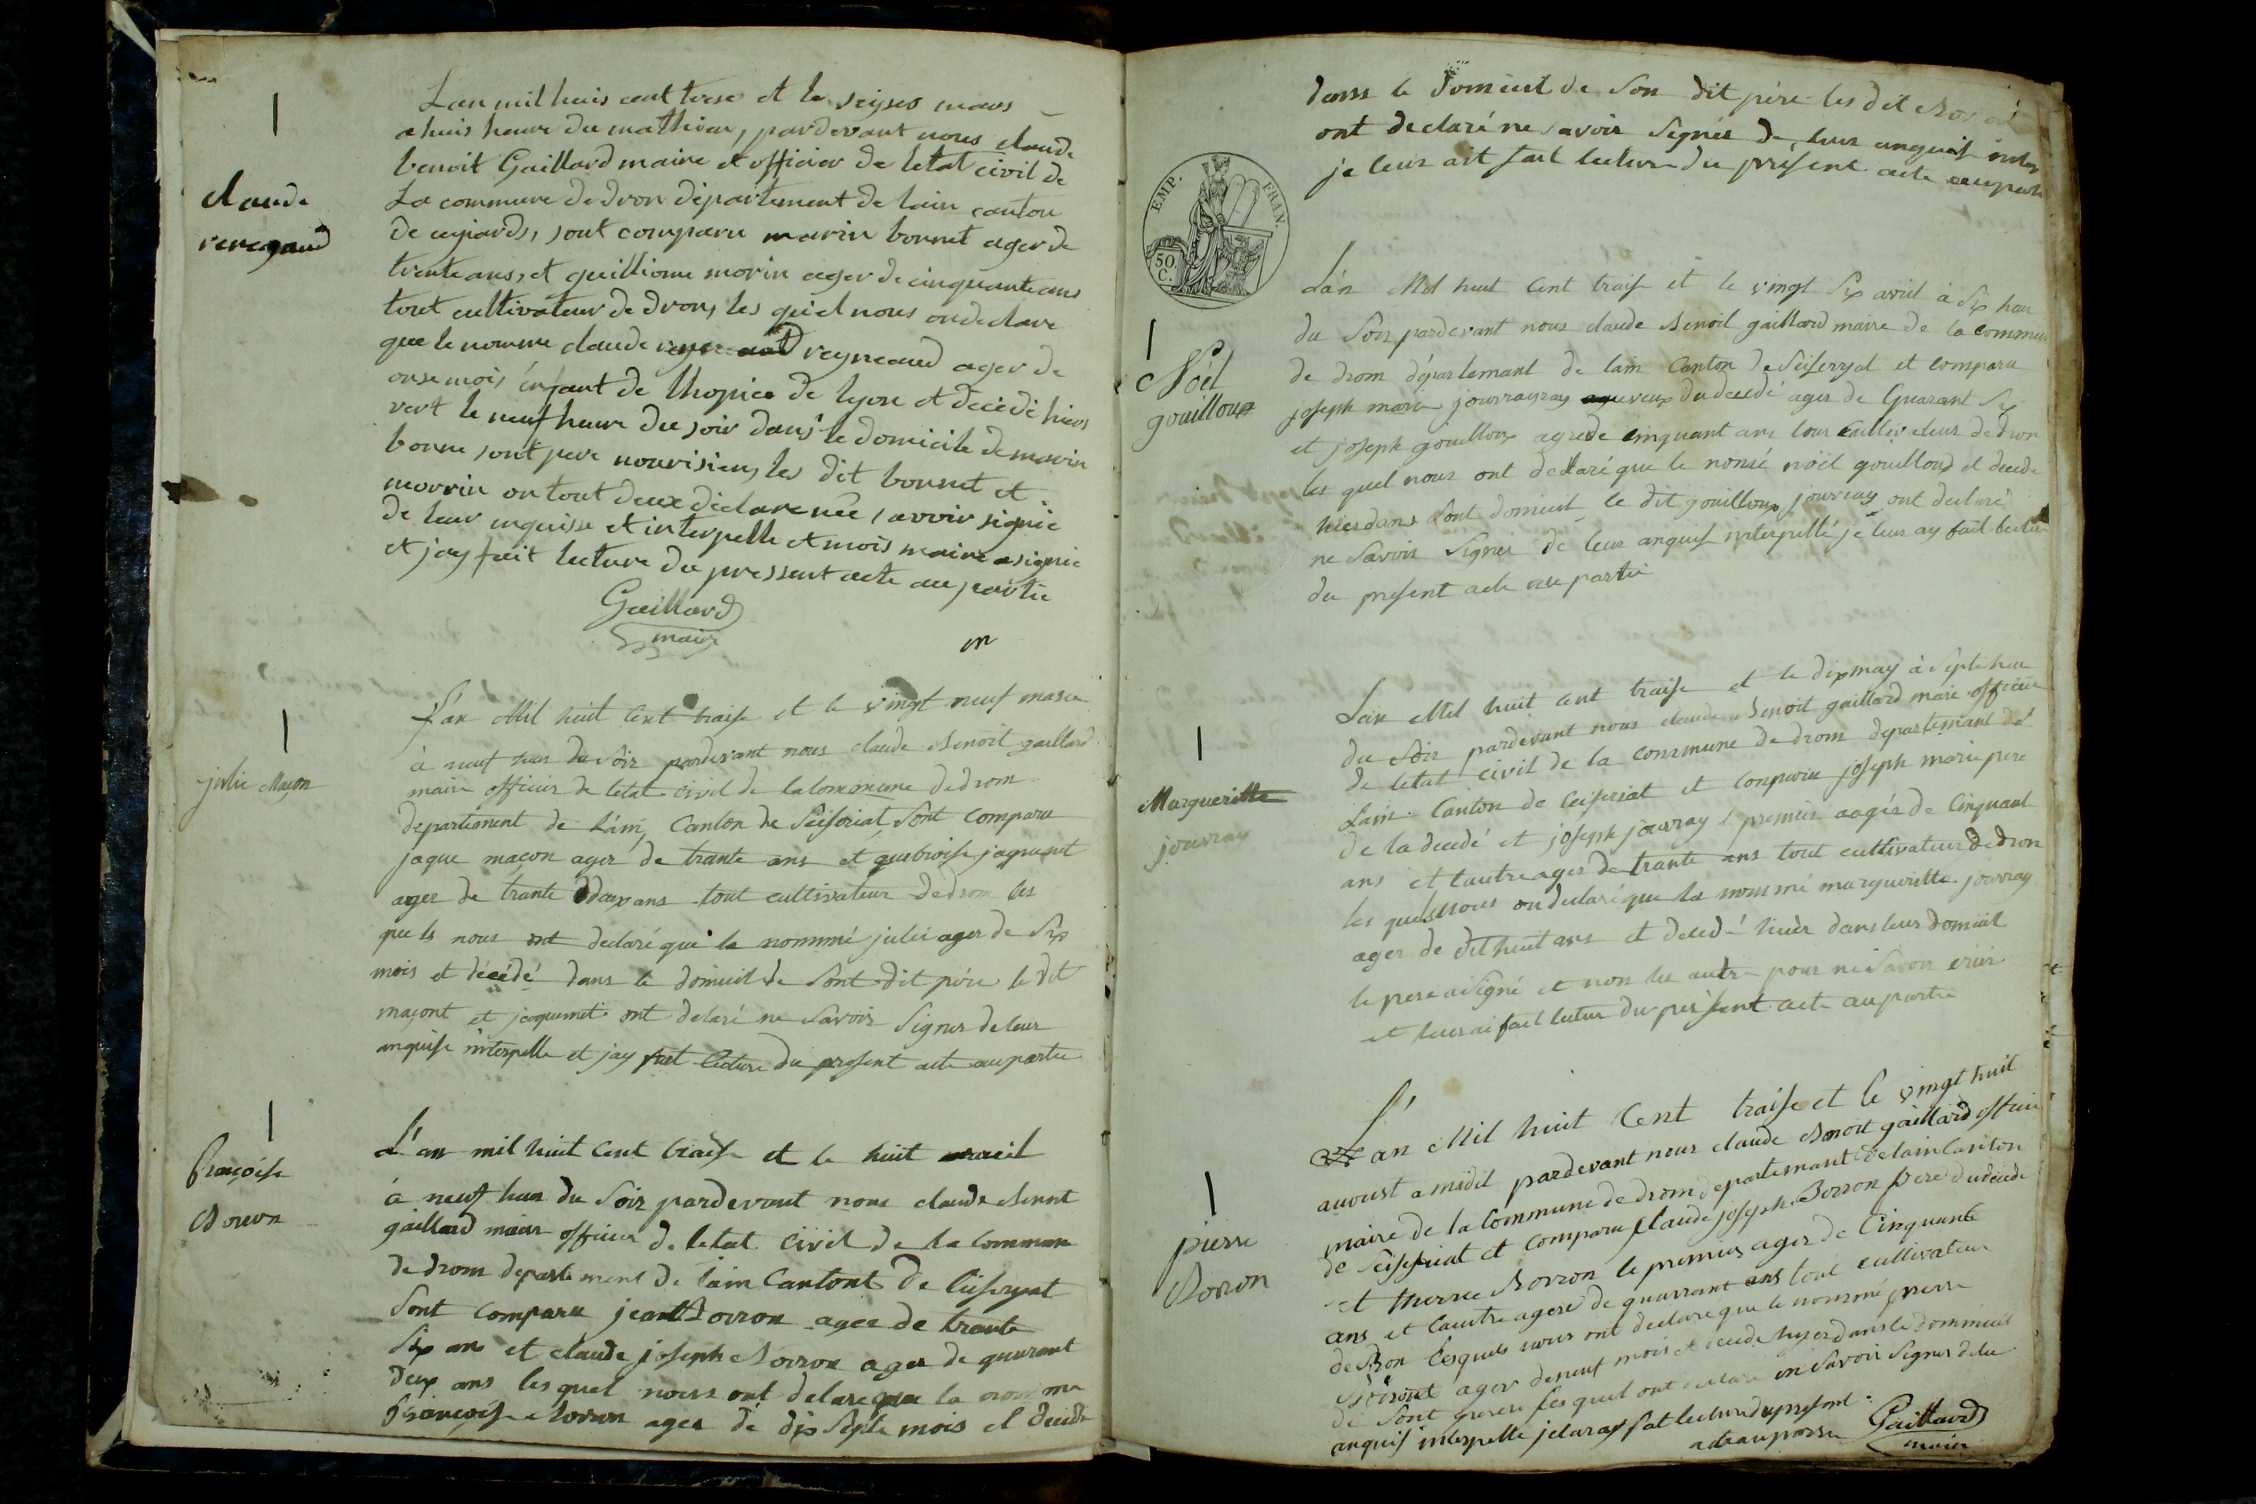 Lan mil huis cent trese et le seyses mars
a huis heure du mathien, pardevant nous claude
benoit Gaillard maire et officier de letat civil de
La commune de dron departement de lain canton
de ceyiards, sont comparu marin bonnet ager de
trente ans, et guillioume morin ager de cinquante ans
tout cultivateur de dron, les quiel nous on declare
que le nomme claude reyneaud ager de
onse mois enfant de lhopice de lyon et decede hiers
vert le neuf heure du soir dans le domicile de marin
bonne sont pere nourisieu, les dit bonnet et
morrin on tout deux declare ne savoir signie
de leur enquisse et interpelle et mois maire a signie
et jay fait lecture du pressent acte au partie
Gaillard
maire
claude
renegaud
L'an Mil huit Cent traise et le vingt neuf mars
à neuf heur du Soir pardevant nous claude Benoit gaillard
maire officier de letat civil de la commune de drom
departement de L'ain, Canton de Seiseriat Sont comparu
jaque maçon ager de trante ans et jaqumet
ager de trante deux ans tout cultivateur de drom les
quels nous ont declaré que la nommé julie ager de Six
mois et décédé dans le domicil de Sont dit père le dit
maçont et jaquemet ont delaré ne Savoir Signer de leur
anquise interpelle et jay fait lecture du present acte au partie
julie Maçon
L'an mil huit Cent traise et le huit avril
à neuf heur du Soir pardevant nous claude Benoit
gaillard maire officier de letat civil de la commune
de drom departement de l'ain Cantont de Ceiseryat
Sont comparu jean Borron ager de trante
Six ans et claude joseph Borron ager de quarant
deux ans les quel nous ont delare que la nommé
françoise Borron ager de dix Septe mois et decede
françoise
Borron
dans le Domicil de Son dit père les dit Borron
ont declaré ne savoir Signer de leur anquise inter
je leur ait fait lecture du présent acte au partie
EMP. FRAN.
50 C.
L'an Mil huit Cent traise et le vingt Six avril à Six heur
du Soir pardevant nous claude Benoit gaillard maire de la commune
de drom département de lain Canton de Seiseryat et comparu
joseph marie jourray neveux du decedé ager de Quarant Six
et joseph gouilloux agede cinquant ans tous cultivateur de dron
les quel nous ont déclaré que le nomé noël gouilloud et decede
hier dans Sont domicil le dit gouilloux jourray ont declaré
ne Savoir Signer de leur anquise interpellé je leur ay fait lectur
du present acte au partie
Noël
gouilloux
Lan Mil huit cent traise et le dix may à Septe heur
du Soir pardevant nous claude Benoit gaillard maire officier
de letat civil de la commune de drom departemant de
Lain Canton de Ceiseriat et comparu joseph marie pere
de la decedé et joseph jourray le premier aagér de Cinquant
ans et lautre ager de trante ans tout cultivateur de dron
les quels nous on declaré que la nommé margueritte jourray
ager de dit huit ans et decedé hier dans leur domicil
le pere a Signé et non les autre pour ne Savoir erir
et leur ai fait lectur du présent acte au partie
Margueritte
jourray
L'an Mil huit Cent traise et le vingt huit
auoust a midit pardevant nous claude Benoit gaillard officier
maire de la Commune de drom departemant de lain Canton
de Seiseriat et comparu Claude joseph Borron pere du decede
et Borron le premier ager de Cinquante
ans et lautre agere de quarrant ans tout cultivateur
de dron lesquels nous ont declare que le nommé pierre
Borront ager de neuf mois et decede hyer dans le dommicil
de Sont perere lesquel ont declare ne Savoir Signer de leu
anquise interpelle je leur ay fait lecture du present
acte au partie Gaillard
maire
pierre
Borron